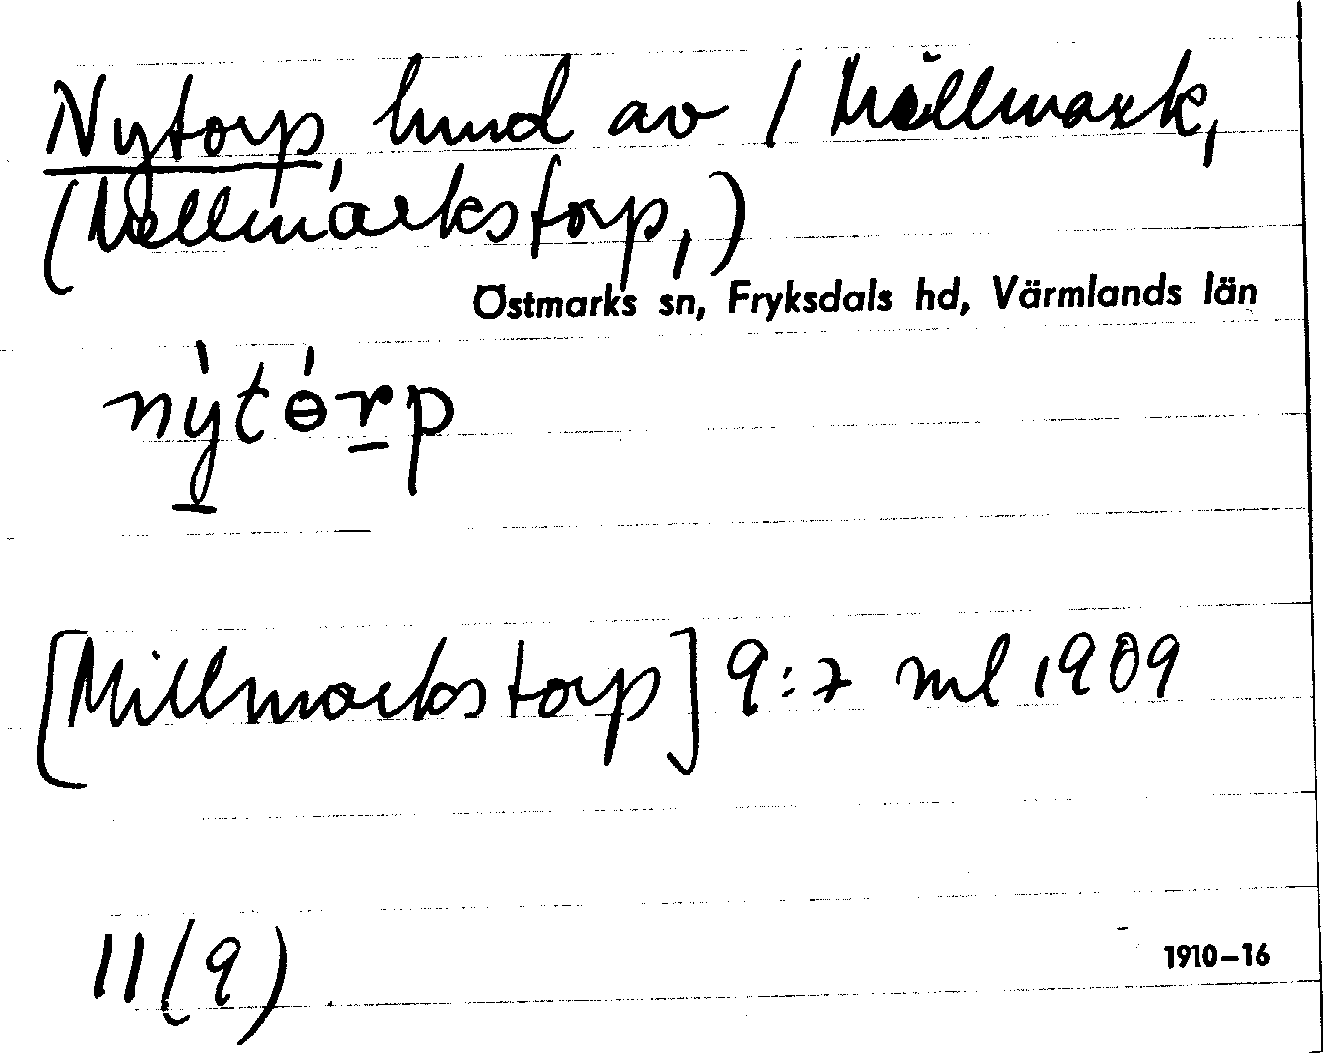 Nytorp, hmd av 1 Mellmark,
(Mellmarkstorp,)
Östmarks sn, Fryksdals hd, Värmlands län
nỳtɵ́rp
[Millmarkstorp] 9:7 ml 1909
11(9)
1910–16